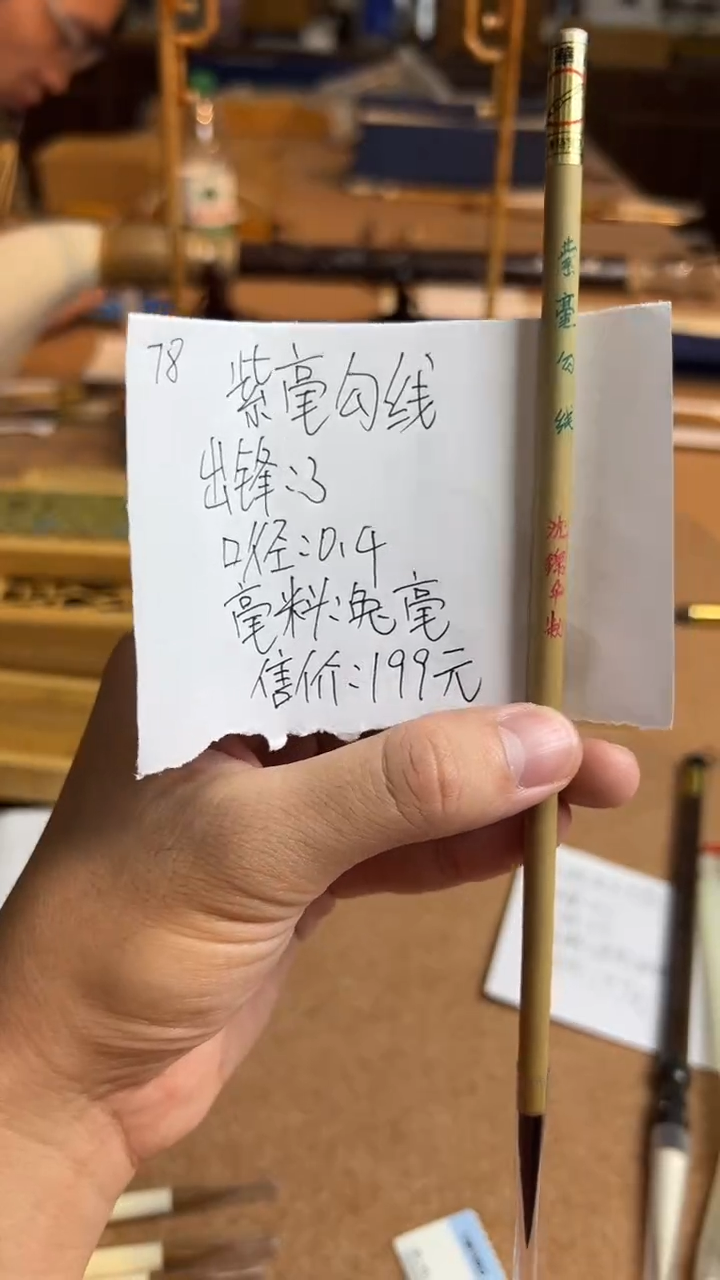 78
紫毫勾线
出锋:3
口径:0.4
毫料:兔毫
售价:199元
紫毫勾线